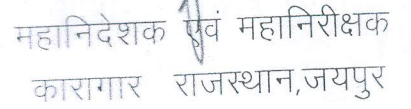 महानिदेशक एवं महानिरीक्षक
कारागार राजस्थान,जयपुर